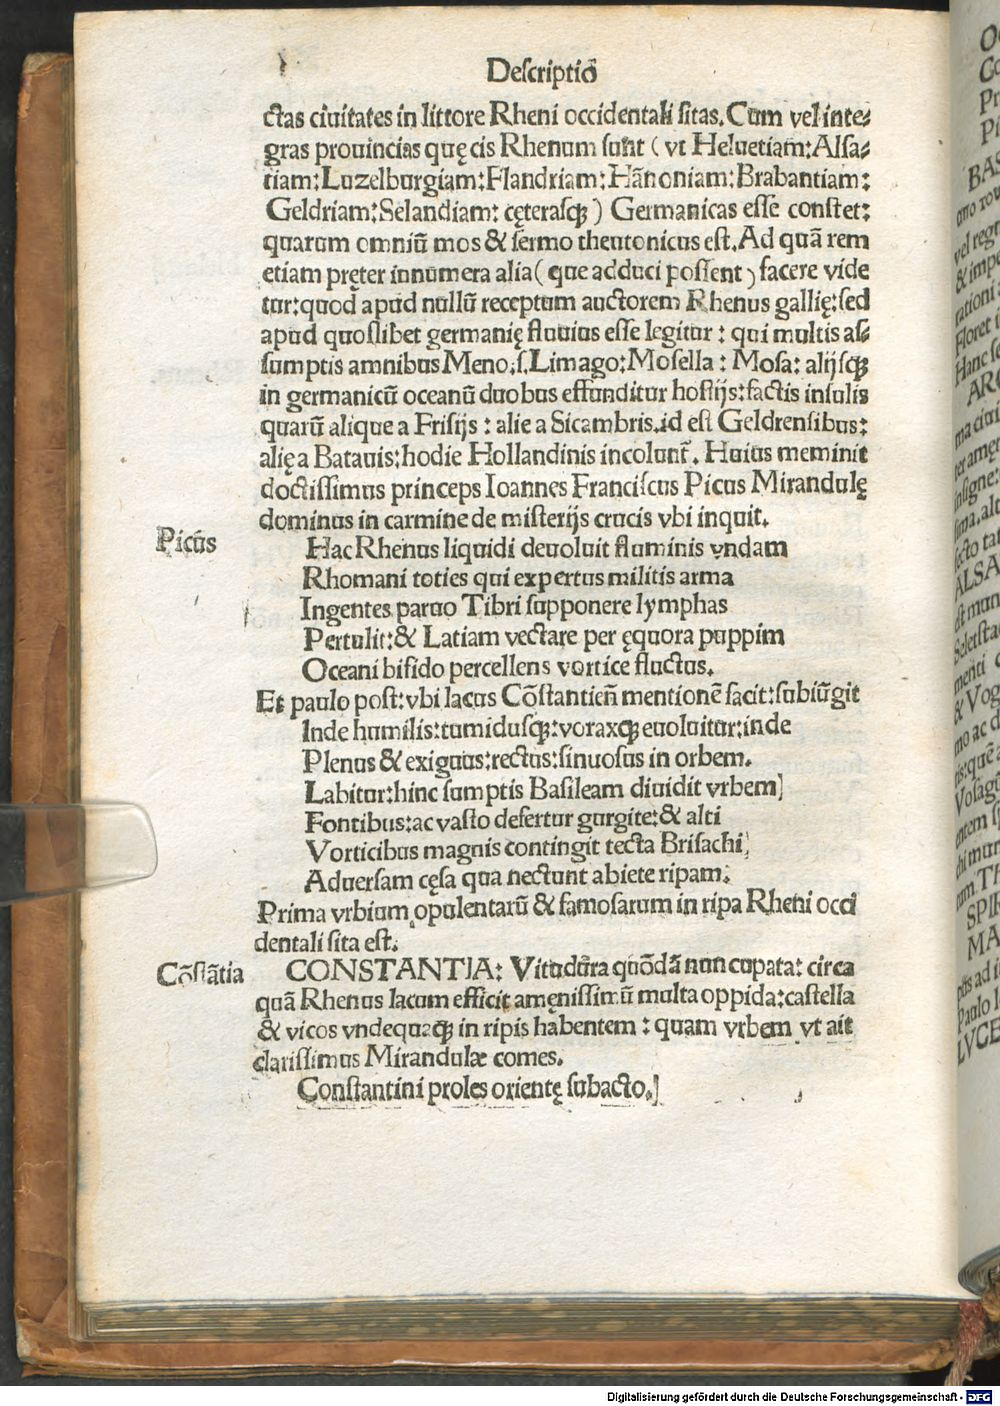 Descriptiō
ctas ciuitates in littore Rheni occidentali sitas. Cum vel inte⸗
gras prouincias quę cis Rhenum sunt ( vt Heluetiam: Alsa⸗
tiam: Luzelburgiam: Flandriam: Hānoniam: Brabantiam:
Geldriam: Selandiam: cęterasqꝫ ) Germanicas esse constet:
quarum omniū mos & sermo theutonicus est. Ad quā rem
etiam pręter innumera alia ( que adduci possent ) facere vide
tur: quod apud nullū receptum auctorem Rhenus gallię: sed
apud quoslibet germanię fluuius esse legitur: qui multis as⸗
sumptis amnibus Meno. s. Limago: Mosella: Mosa: alijsqꝫ
in germanicū oceanū duobus effunditur hostijs: factis insulis
quarū alique a Frisijs: alie a Sicambris. id est Geldrensibus:
alię a Batauis: hodie Hollandinis incolunt᷑. Huius meminit
doctissimus princeps Ioannes Franciscus Picus Mirandulę
dominus in carmine de misterijs crucis vbi inquit.
Picus
Hac Rhenus liquidi deuoluit fluminis vndam
Rhomani toties qui expertus militis arma
Ingentes paruo Tibri supponere lymphas
Pertulit: & Latiam vectare per ęquora puppim
Oceani bifido percellens vortice fluctus.
Et paulo post: vbi lacus Cōstantieñ mentionē facit: subiūgit
Inde humilis: tumidusqꝫ: voraxqꝫ euoluitur: inde
Plenus & exiguus: rectus: sinuosus in orbem.
Labitur: hinc sumptis Basileam diuidit vrbem
Fontibus: ac vasto defertur gurgite: & alti
Vorticibus magnis contingit tecta Brisachi
Aduersam cęsa qua nectunt abiete ripam:
Prima vrbium opulentarū & famosarum in ripa Rheni occi
dentali sita est.
Cōstātia
CONSTANTIA: Vitudura quōdā nuncupata: circa
quā Rhenus lacum efficit amęnissimū multa oppida: castella
& vicos vndequaqꝫ in ripis habentem: quam vrbem vt ait
clarissimus Mirandulæ comes.
Constantini proles orientę subacto.
OC
Digitalisierung gefördert durch die Deutsche Forschungsgemeinschaft - DFG